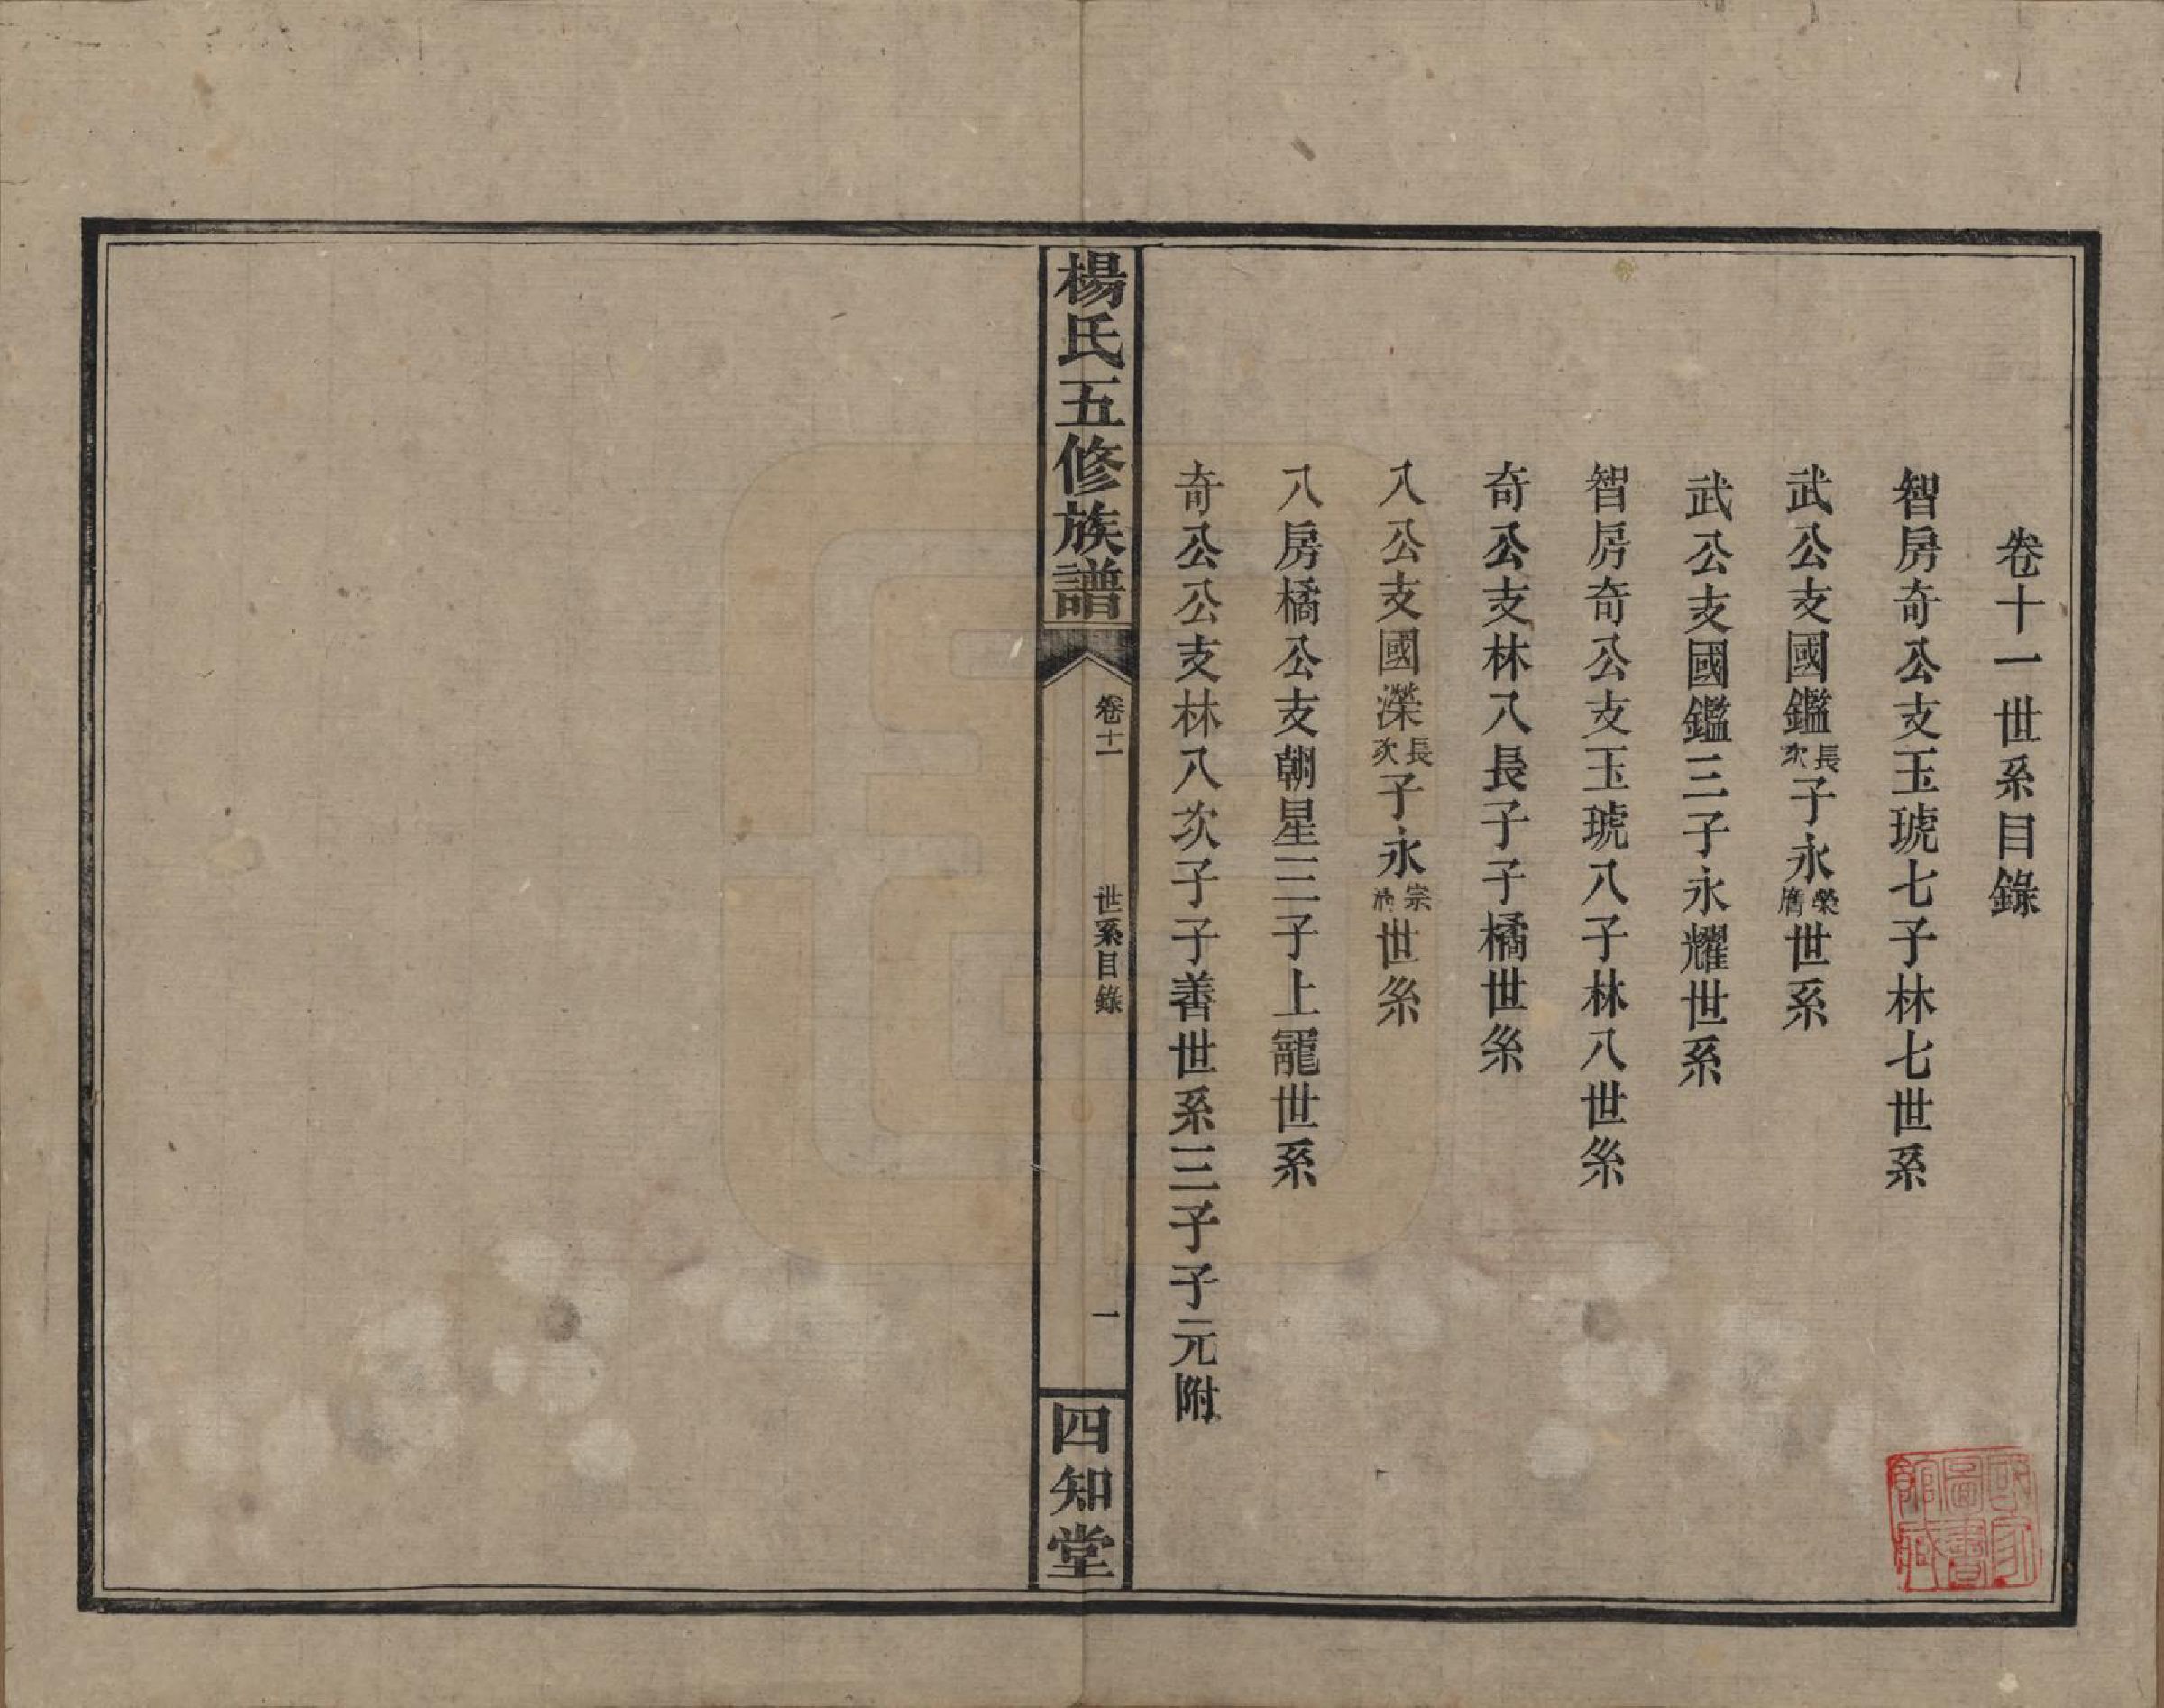 卷十一世系目錄
智房奇公支玉琥七子林七世系
武公支國鑑長次子永榮膺世系
武公支國鑑三子永耀世系
智房奇公支玉琥八子林八世系
奇公支林八長子子橘世系
八公支國濚長次子永崇世系
八房橘公支朝星三子上寵世系
奇公公支林八次子子善世系三子子元附
楊氏五修族譜
卷十一
世系目錄
一
四知堂
國家圖書館藏